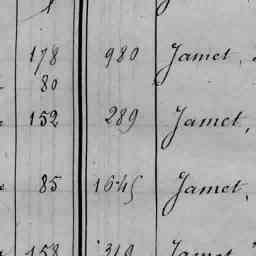 178 980 Jamet,
80
152 289 Jamet,
85 1645 Jamet,
158 319 Jamet